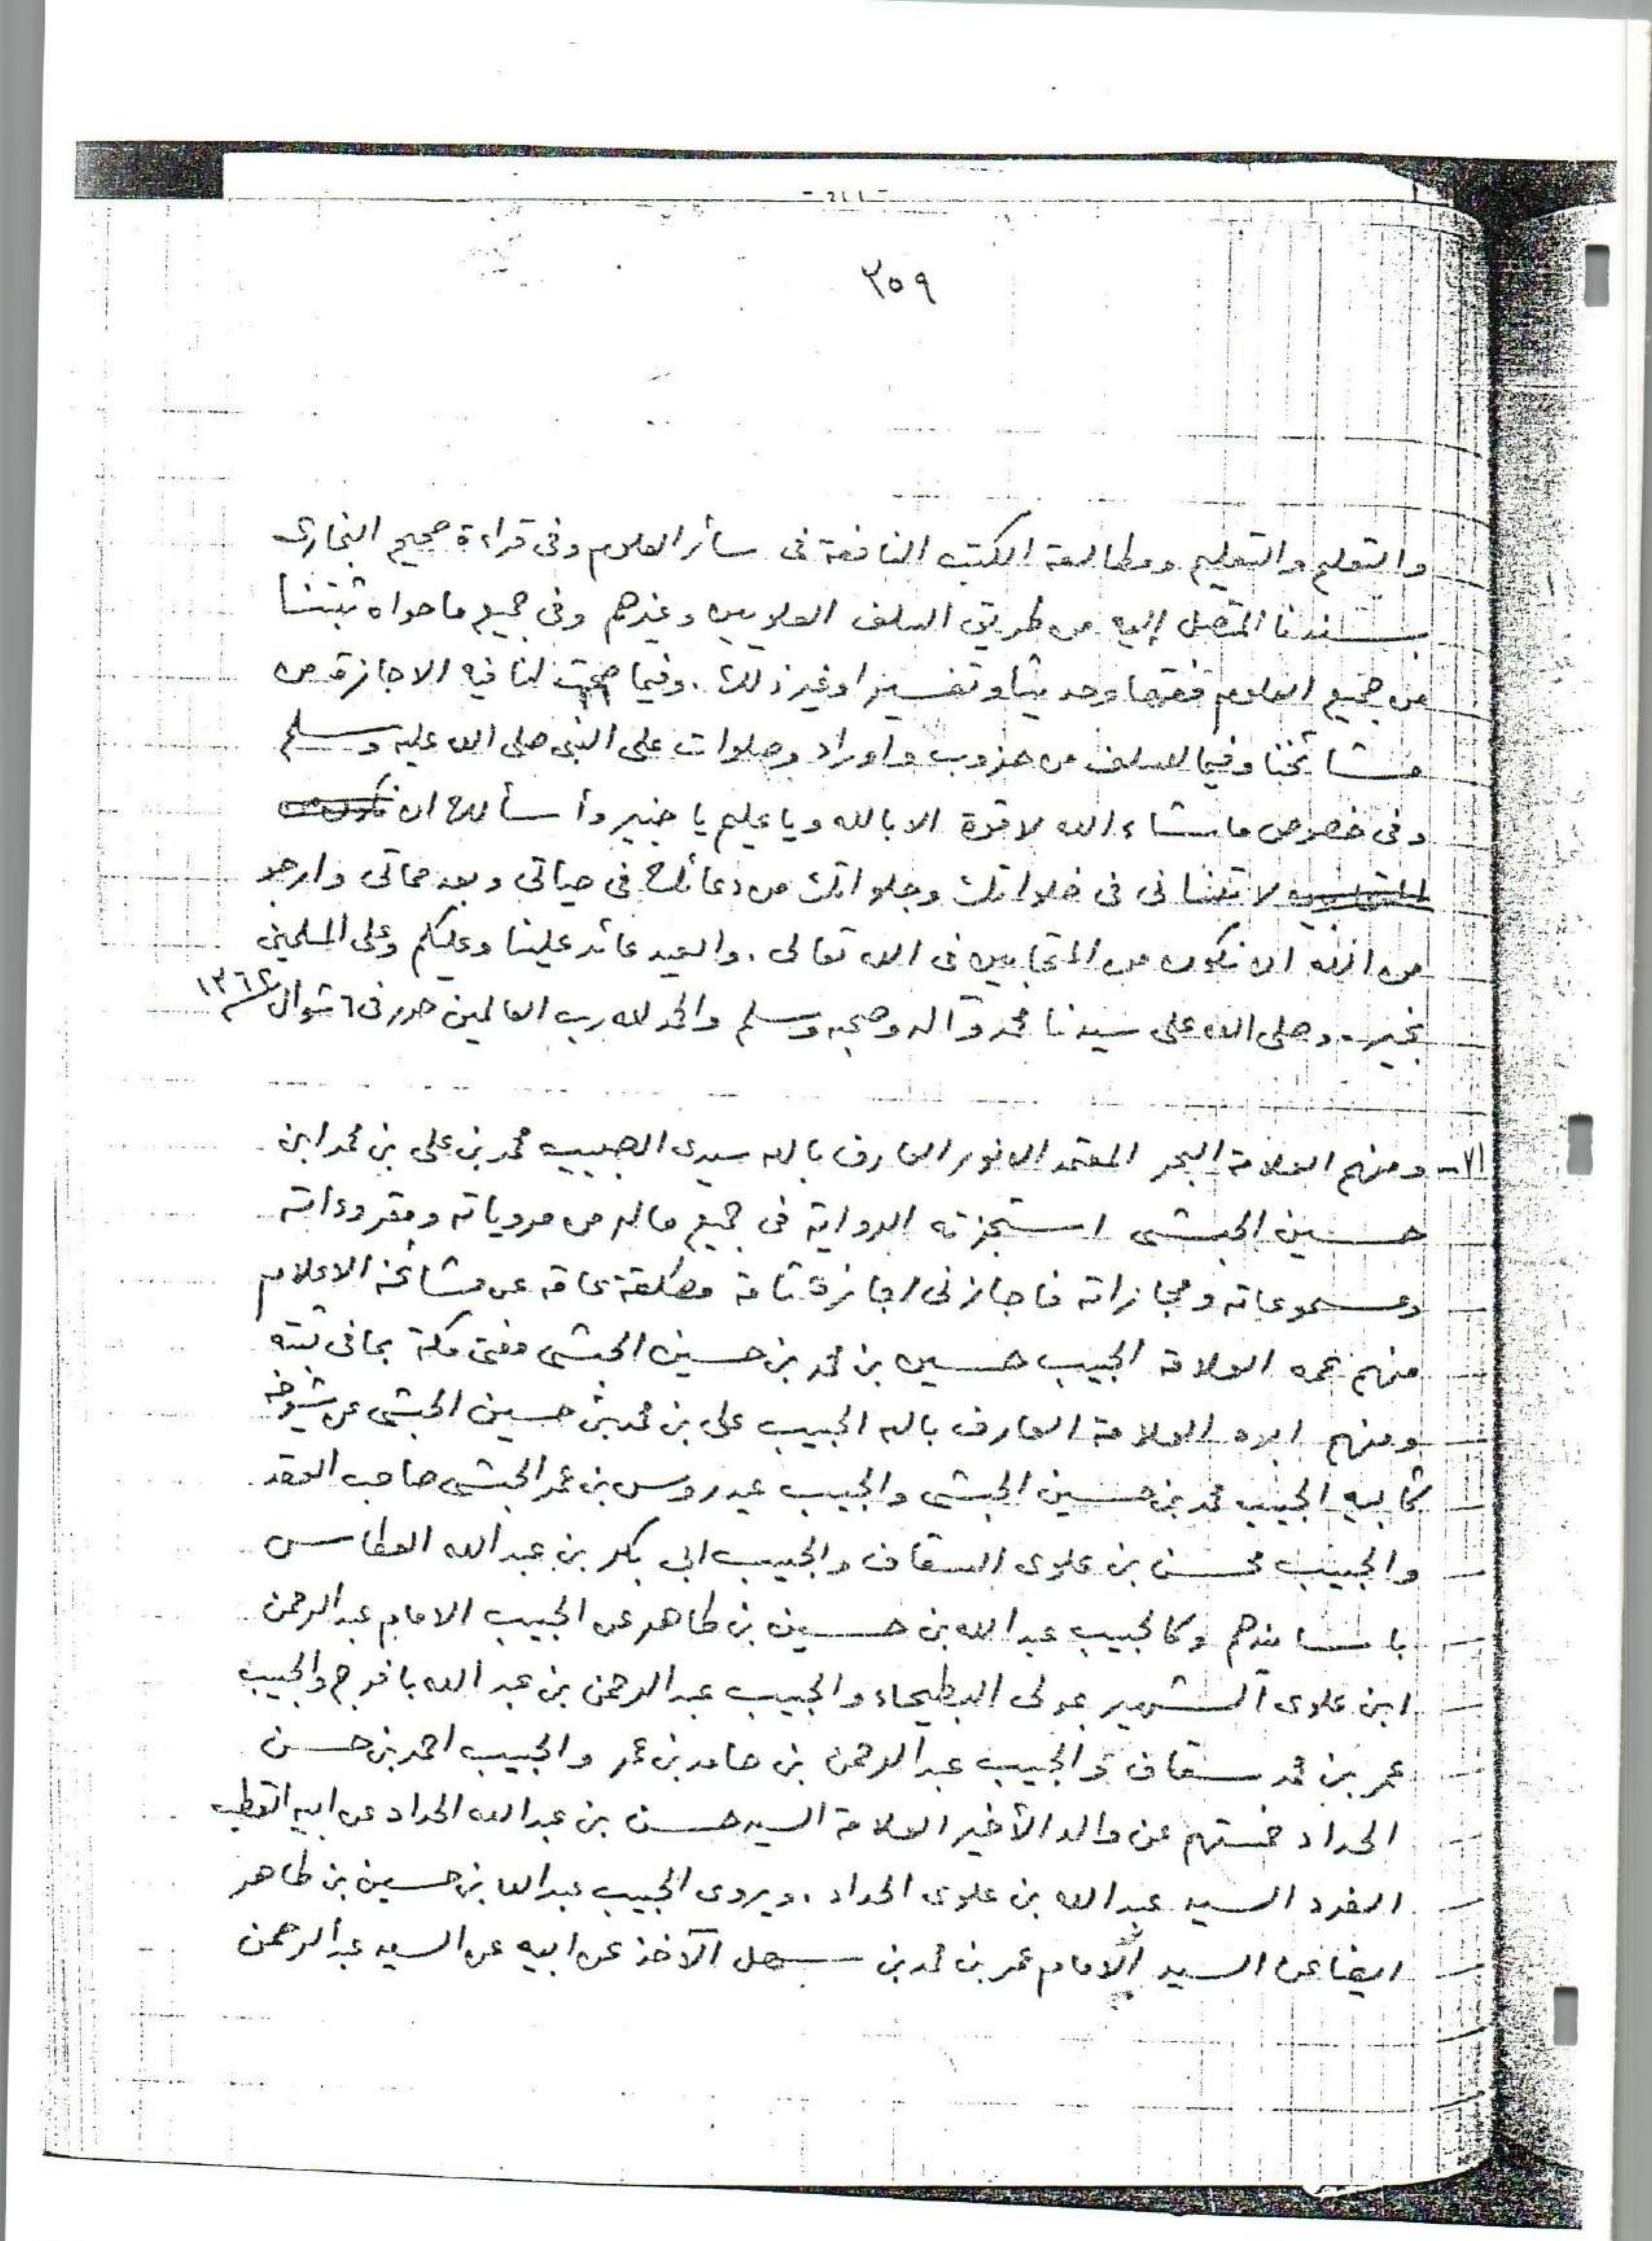 ٣٥٩
والتعلم والتعليم ومطالعة الكتب النافعة فى سائر العلوم وفى قراءة صحيح البخارى
بسندنا المتصل إليه من طريق السلف العلويين وغيرهم وفى جميع ما حواه ثبتنا
من جميع العلوم فقها وحديثا وتفسيرا وغير ذلك . وفيما صحت لنا فيه الاجازة من
مشائخنا وفيما للسلف من حزوب واوراد وصلوات على النبى صلى الله عليه وسلم
وفى خصوص ما شاء الله لا قوة الا بالله ويا عليم يا خبير وأسألك ان نكون من
المتحابين لا تنسانى فى خلواتك وجلواتك من دعائك فى حياتى وبعد مماتى وارجو
من الله ان نكون من المتحابين فى الله تعالى . والعيد عائد علينا وعليكم وعلى المسلمين
بخير . وصلى الله على سيدنا محمد وآله وصحبه وسلم والحمد لله رب العالمين حرر فى ٦ شوال
٧١- ومنهم العلامة البحر المعتمد الانور العارف بالله سيدى الحبيب محمد بن على بن محمد ابن
حسين الحبشى استجزته الرواية فى جميع ماله من مروياته ومقروءاته
ومسموعاته ومجازاته فاجازنى اجازة تامة مطلقة عامة عن مشائخه الاعلام
منهم عمه العلامة الحبيب حسين بن محمد بن حسين الحبشى مفتى مكة بما فى ثبته
ومنهم ابوه العلامة العارف بالله الحبيب على بن محمد بن حسين الحبشى عن شيوخه
كأبيه الحبيب محمد بن حسين الحبشى والحبيب عيدروس بن عمر الحبشى صاحب العقد
والحبيب محسن بن علوى السقاف والحبيب ابى بكر بن عبد الله العطاس
باسانيدهم وكالحبيب عبد الله بن حسين بن طاهر عن الحبيب الامام عبد الرحمن
ابن علوى الشهير بمولى البطيحاء والحبيب عبد الرحمن بن عبد الله بافرج والحبيب
عمر بن محمد سقاف والحبيب عبد الرحمن بن حامد بن عمر والحبيب احمد بن حسن
الحداد خمستهم عن والد الأخير العلامة السيد حسن بن عبد الله الحداد عن ابيه القطب
الفرد السيد عبد الله بن علوى الحداد . ويروى الحبيب عبد الله بن حسين بن طاهر
ايضا عن السيد الامام عمر بن محمد بن سهل الآخذ عن ابيه عن السيد عبد الرحمن